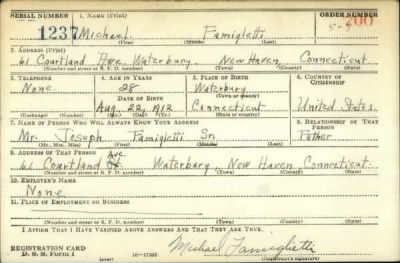 SERIAL NUMBER 1. NAME (Print) ORDER NUMBER
1237 Michael Famigletti 200
(First) (Middle) (Last)
2. ADDRESS (Print)
61 Courtland Ave, Waterbury, New Haven, Connecticut
(Number and street or R. F. D. number) (Town) (County) (State)
3. TELEPHONE 4. AGE IN YEARS 5. PLACE OF BIRTH 6. COUNTRY OF CITIZENSHIP
None 28 Waterbury
DATE OF BIRTH (Town or county)
Aug. 22, 1912 Connecticut United States
(Exchange) (Number) (Mo.) (Day) (Yr.) (State or country)
7. NAME OF PERSON WHO WILL ALWAYS KNOW YOUR ADDRESS 8. RELATIONSHIP OF THAT PERSON
Mr. Joseph Famigletti Sr. Father
(Mr., Mrs., Miss) (First) (Middle) (Last)
9. ADDRESS OF THAT PERSON
61 Courtland Ave Waterbury New Haven Connecticut
(Number and street or R. F. D. number) (Town) (County) (State)
10. EMPLOYER'S NAME
None
11. PLACE OF EMPLOYMENT OR BUSINESS
(Number and street or R. F. D. number) (Town) (County) (State)
I AFFIRM THAT I HAVE VERIFIED ABOVE ANSWERS AND THAT THEY ARE TRUE.
REGISTRATION CARD
D. S. S. Form 1 (over) Michael Famiglietti
(Registrant's signature)